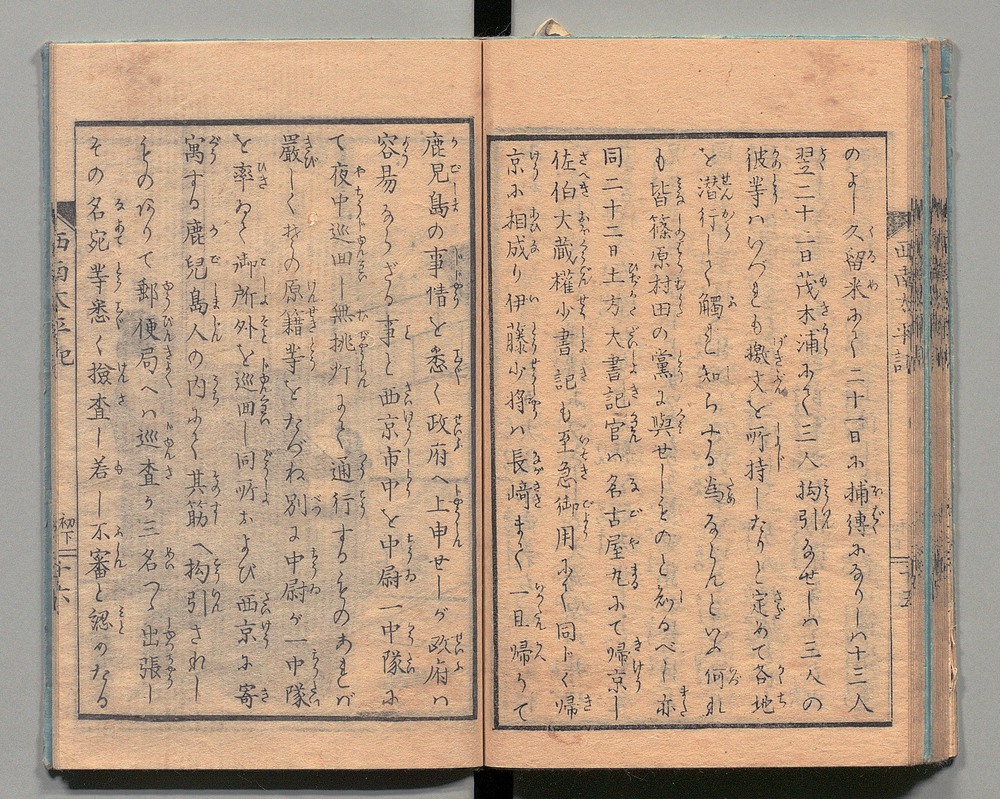 のよし久留米にて二十一日に捕縛になりしハ十三人
翌二十二日茂木浦にて三人拘引なせしハ三人の
彼等ハいづれも檄文を所持したりと定めて各地
を潜行して觸れ知らする為ならんといふ何れ
も皆篠原村田の黨に與せしものと知るべし亦
同二十二日土方大書記官ハ名古屋にて帰京し
佐伯大蔵權少書記も至急御用にて同じく帰
京に相成り伊藤少将ハ長崎まで一旦帰りて
西南太平記
鹿児島の事情を悉く政府へ上申せしが政府ハ
容易ならざる事と西京市中を中尉一中隊に
て夜中巡回し無挑灯にて通行するものあれバ
嚴しく其の原籍等をたづね別に中尉が一中隊
を率ゐて御所外を巡回し同所および西京に寄
寓する鹿兒島人の内にて其筋へ拘引されし
ものありて郵便局へハ巡査が三名づゝ出張し
その名宛等悉く撿査し若し不審と認めたる
西南太平記
初下
二十六